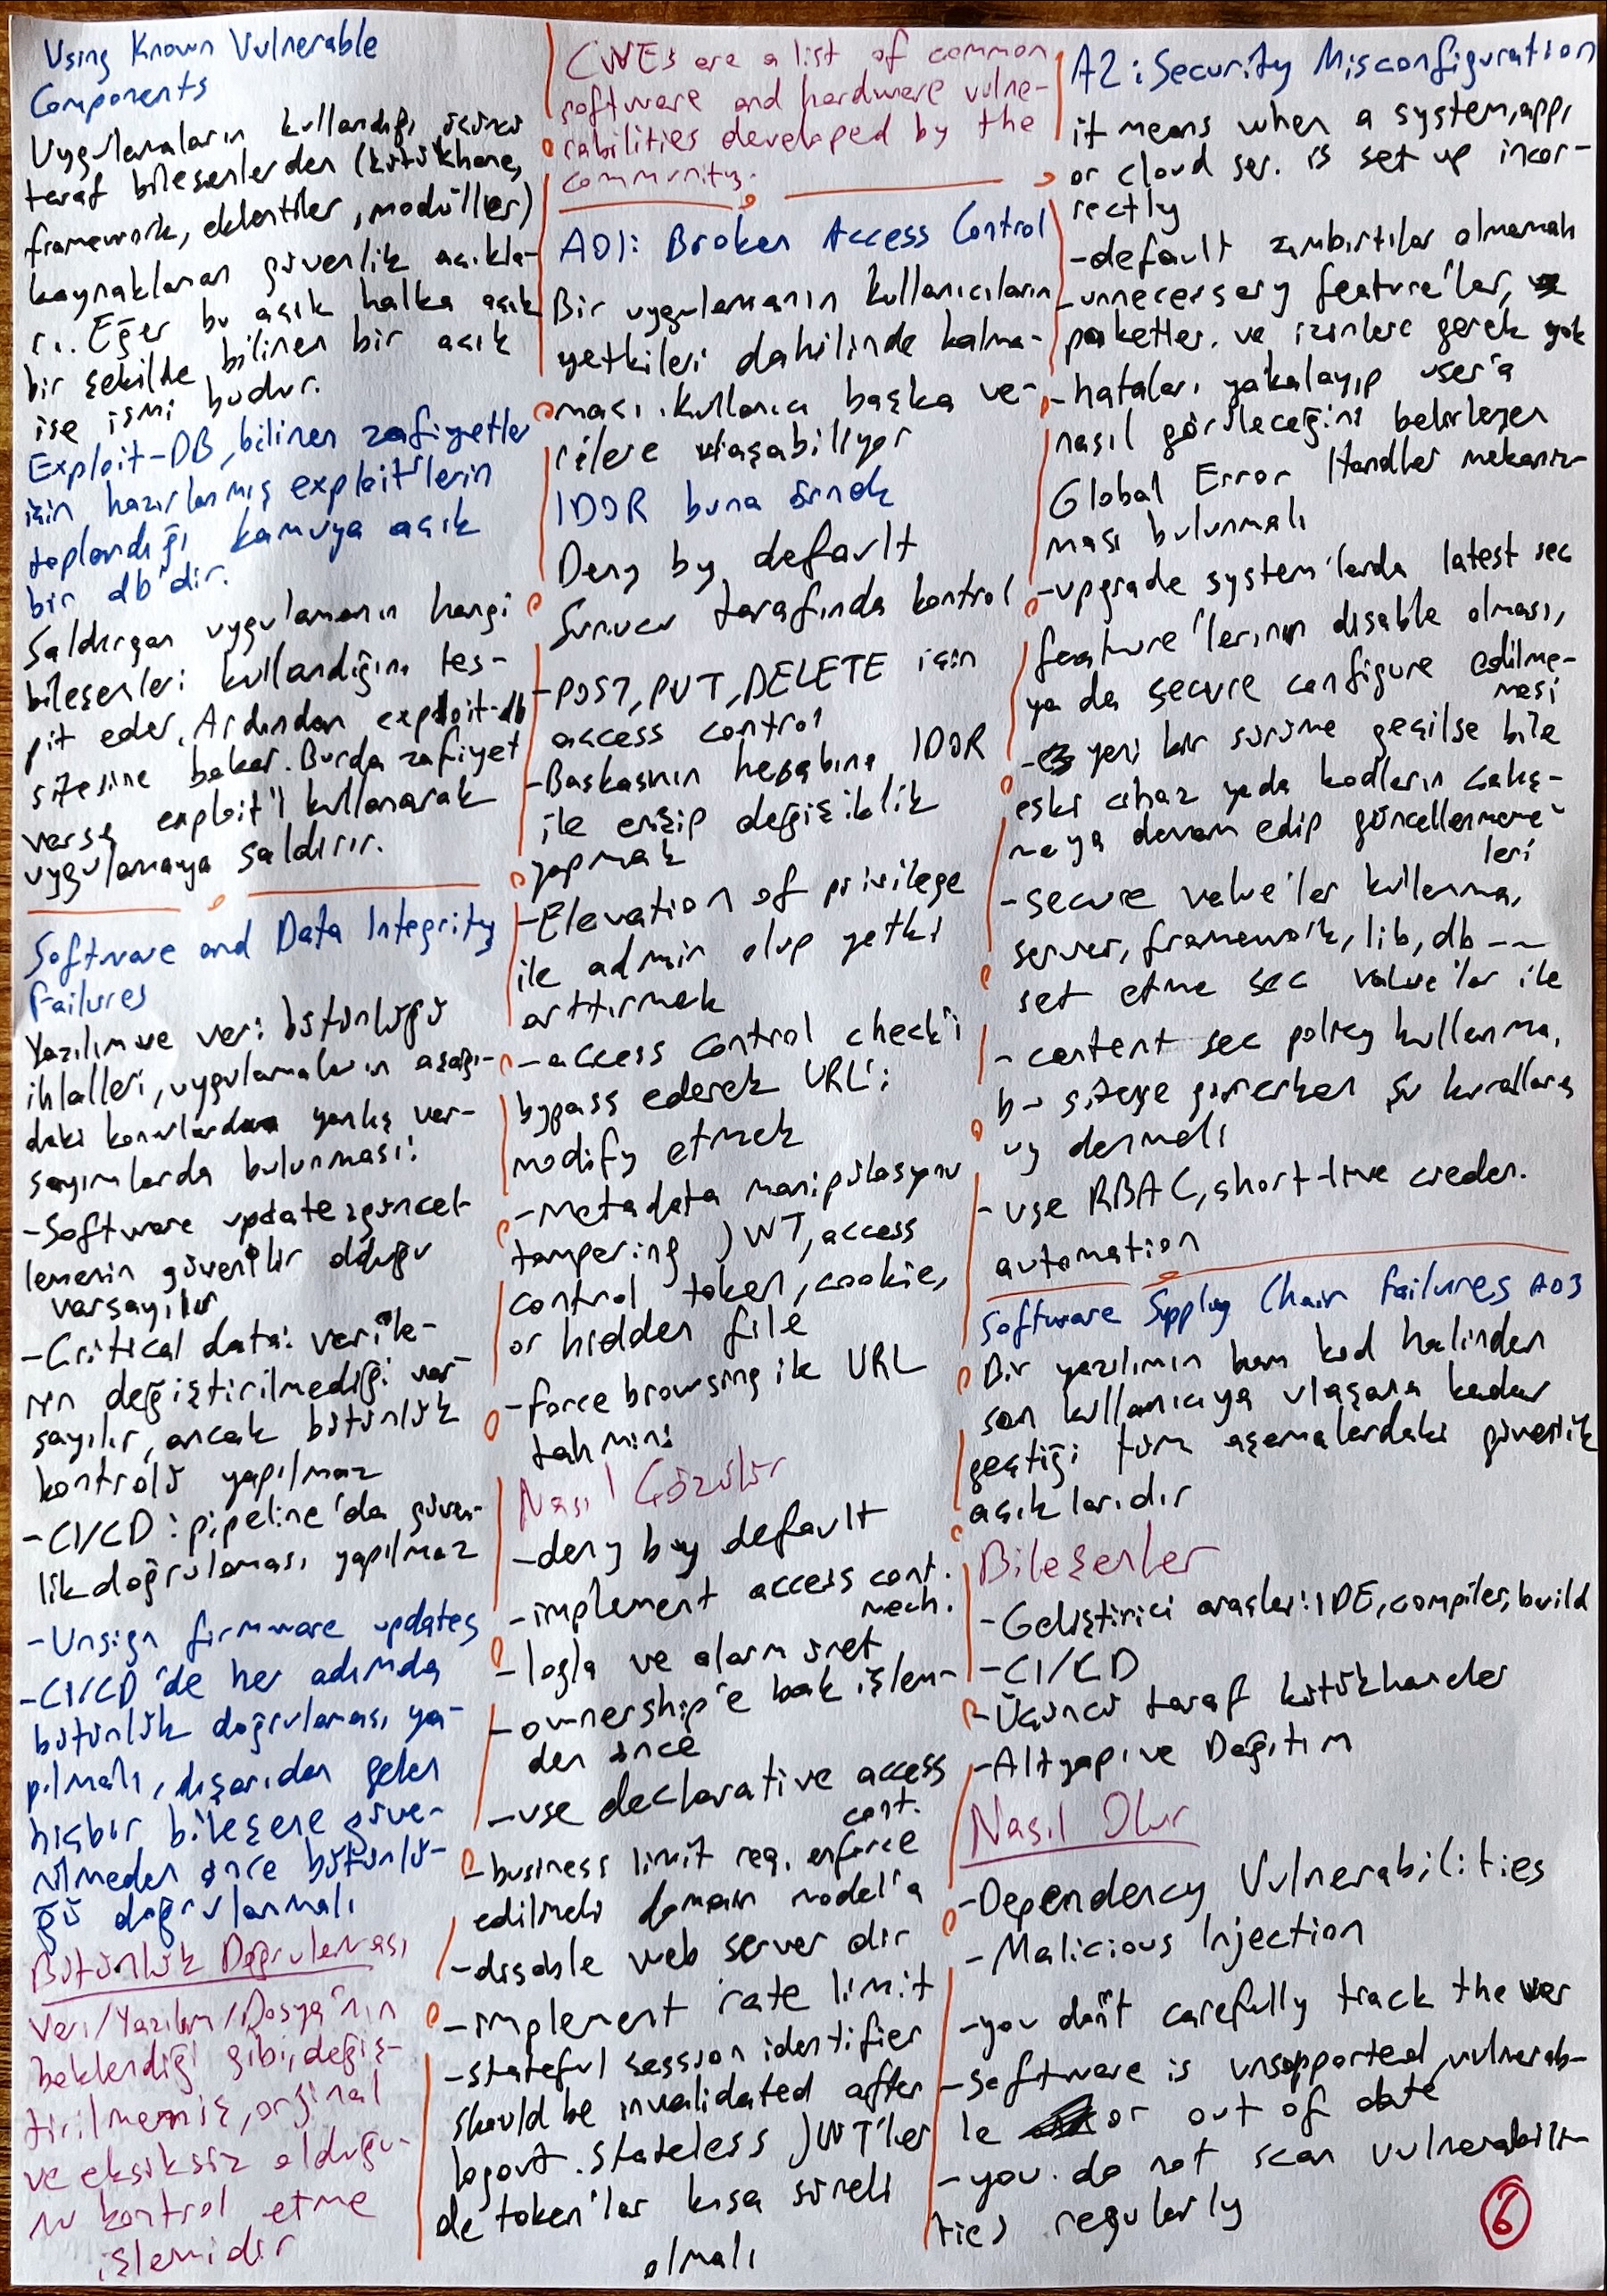 Using Known Vulnerable
Components
Uygulamaların kullandığı üçüncü
taraf bileşenlerden (kütükhane,
framework, eklentiler, modüller)
kaynaklanan güvenlik açıkla-
rı. Eğer bu açık halka açık
bir şekilde bilinen bir açık
ise ismi budur.
Exploit-DB, bilinen zafiyetler
için hazırlanmış exploit'lerin
toplandığı kamuya açık
bir db'dir.
Saldırgan uygulamanın hangi
bileşenleri kullandığını tes-
pit eder. Ardından exploit-db
sitesine bakar. Burda zafiyet
varsa exploit'i kullanarak
uygulamaya saldırır.
Software and Data Integrity
Failures
Yazılım ve veri bütünlüğü
ihlalleri, uygulamaların aşağı-
daki konularda yanlış var-
sayımlarda bulunması:
-Software update: güncel-
lemenin güvenilir olduğu
varsayılır
-Critical data: verile-
rin değiştirilmediği var-
sayılır, ancak bütünlük
kontrolü yapılmaz
-CI/CD: pipeline'da güven-
lik doğrulaması yapılmaz
-Unsign firmware updates
-CI/CD'de her adımda
bütünlük doğrulaması ya-
pılmalı, dışarıdan gelen
hiçbir bileşene güve-
nilmeden önce bütünlü-
ğü doğrulanmalı
Bütünlük Doğrulaması
Veri/Yazılım/Dosya'nın
beklendiği gibi, değiş-
tirilmemiş, orjinal
ve eksiksiz olduğu-
nu kontrol etme
işlemidir
CWEs are a list of common
software and hardware vulne-
rabilities developed by the
community.
A01: Broken Access Control
Bir uygulamanın kullanıcıların
yetkileri dahilinde kalma-
ması. Kullanıcı başka ve-
rilere ulaşabiliyor
IDOR buna örnek
Deny by default
Sunucu tarafında kontrol
-POST, PUT, DELETE için
access control
-Baskasının hesabına IDOR
ile erişip değişiklik
yapmak
-Elevation of privilege
ile admin olup yetki
arttırmak
-access control check'i
bypass ederek URL'i
modify etmek
-Metadata manipülasyonu
tampering JWT, access
control token, cookie,
or hidden file
-force browsing ile URL
tahmini
Nasıl Çözülür
-deny by default
-implement access cont.
mech.
-logla ve alarm üret
-ownership'e bak işlem-
den önce
-use declarative access
cont.
-business limit req. enforce
edilmeli domain model'a
-disable web server dir
-implement rate limit
-stateful session identifier
should be invalidated after
logout. Stateless JWT'ler
de token'lar kısa süreli
olmalı
A2: Security Misconfiguration
it means when a system, app,
or cloud ser. is set up incor-
rectly
-default zımbırtılar olmamalı
-unnecessary feature'lar,
paketler. ve izinlere gerek yok
-hataları yakalayıp user'a
nasıl görüleceğini belirleyen
Global Error Handler mekaniz-
ması bulunmalı
-upgrade system'larda latest sec
feature'lerinin disable olması,
ya da secure configure edilme-
mesi
- yeni bir sürüme geçilse bile
eski cihaz yada kodların çalış-
maya devam edip güncellenmeme-
leri
-secure value'ler kullanma,
server, framework, lib, db ---
set etme sec value'lar ile
-content sec policy kullanma,
bu siteye girerken şu kurallara
uy denmeli
-use RBAC, short-live creden.
automation
Software Supply Chain Failures A03
Bir yazılımın ham kod halinden
son kullanıcıya ulaşana kadar
geçtiği tüm aşamalardaki güvenlik
açıklarıdır
Bileşenler
-Geliştirici araçları: IDE, compiler, build
-CI/CD
-Üçüncü taraf kütükhaneler
-Altyapı ve Dağıtım
Nasıl Olur
-Dependency Vulnerabilities
-Malicious Injection
-you don't carefully track the ver
-software is unsupported, vulnerab-
le or out of date
-you do not scan vulnerabili-
ties regularly
6